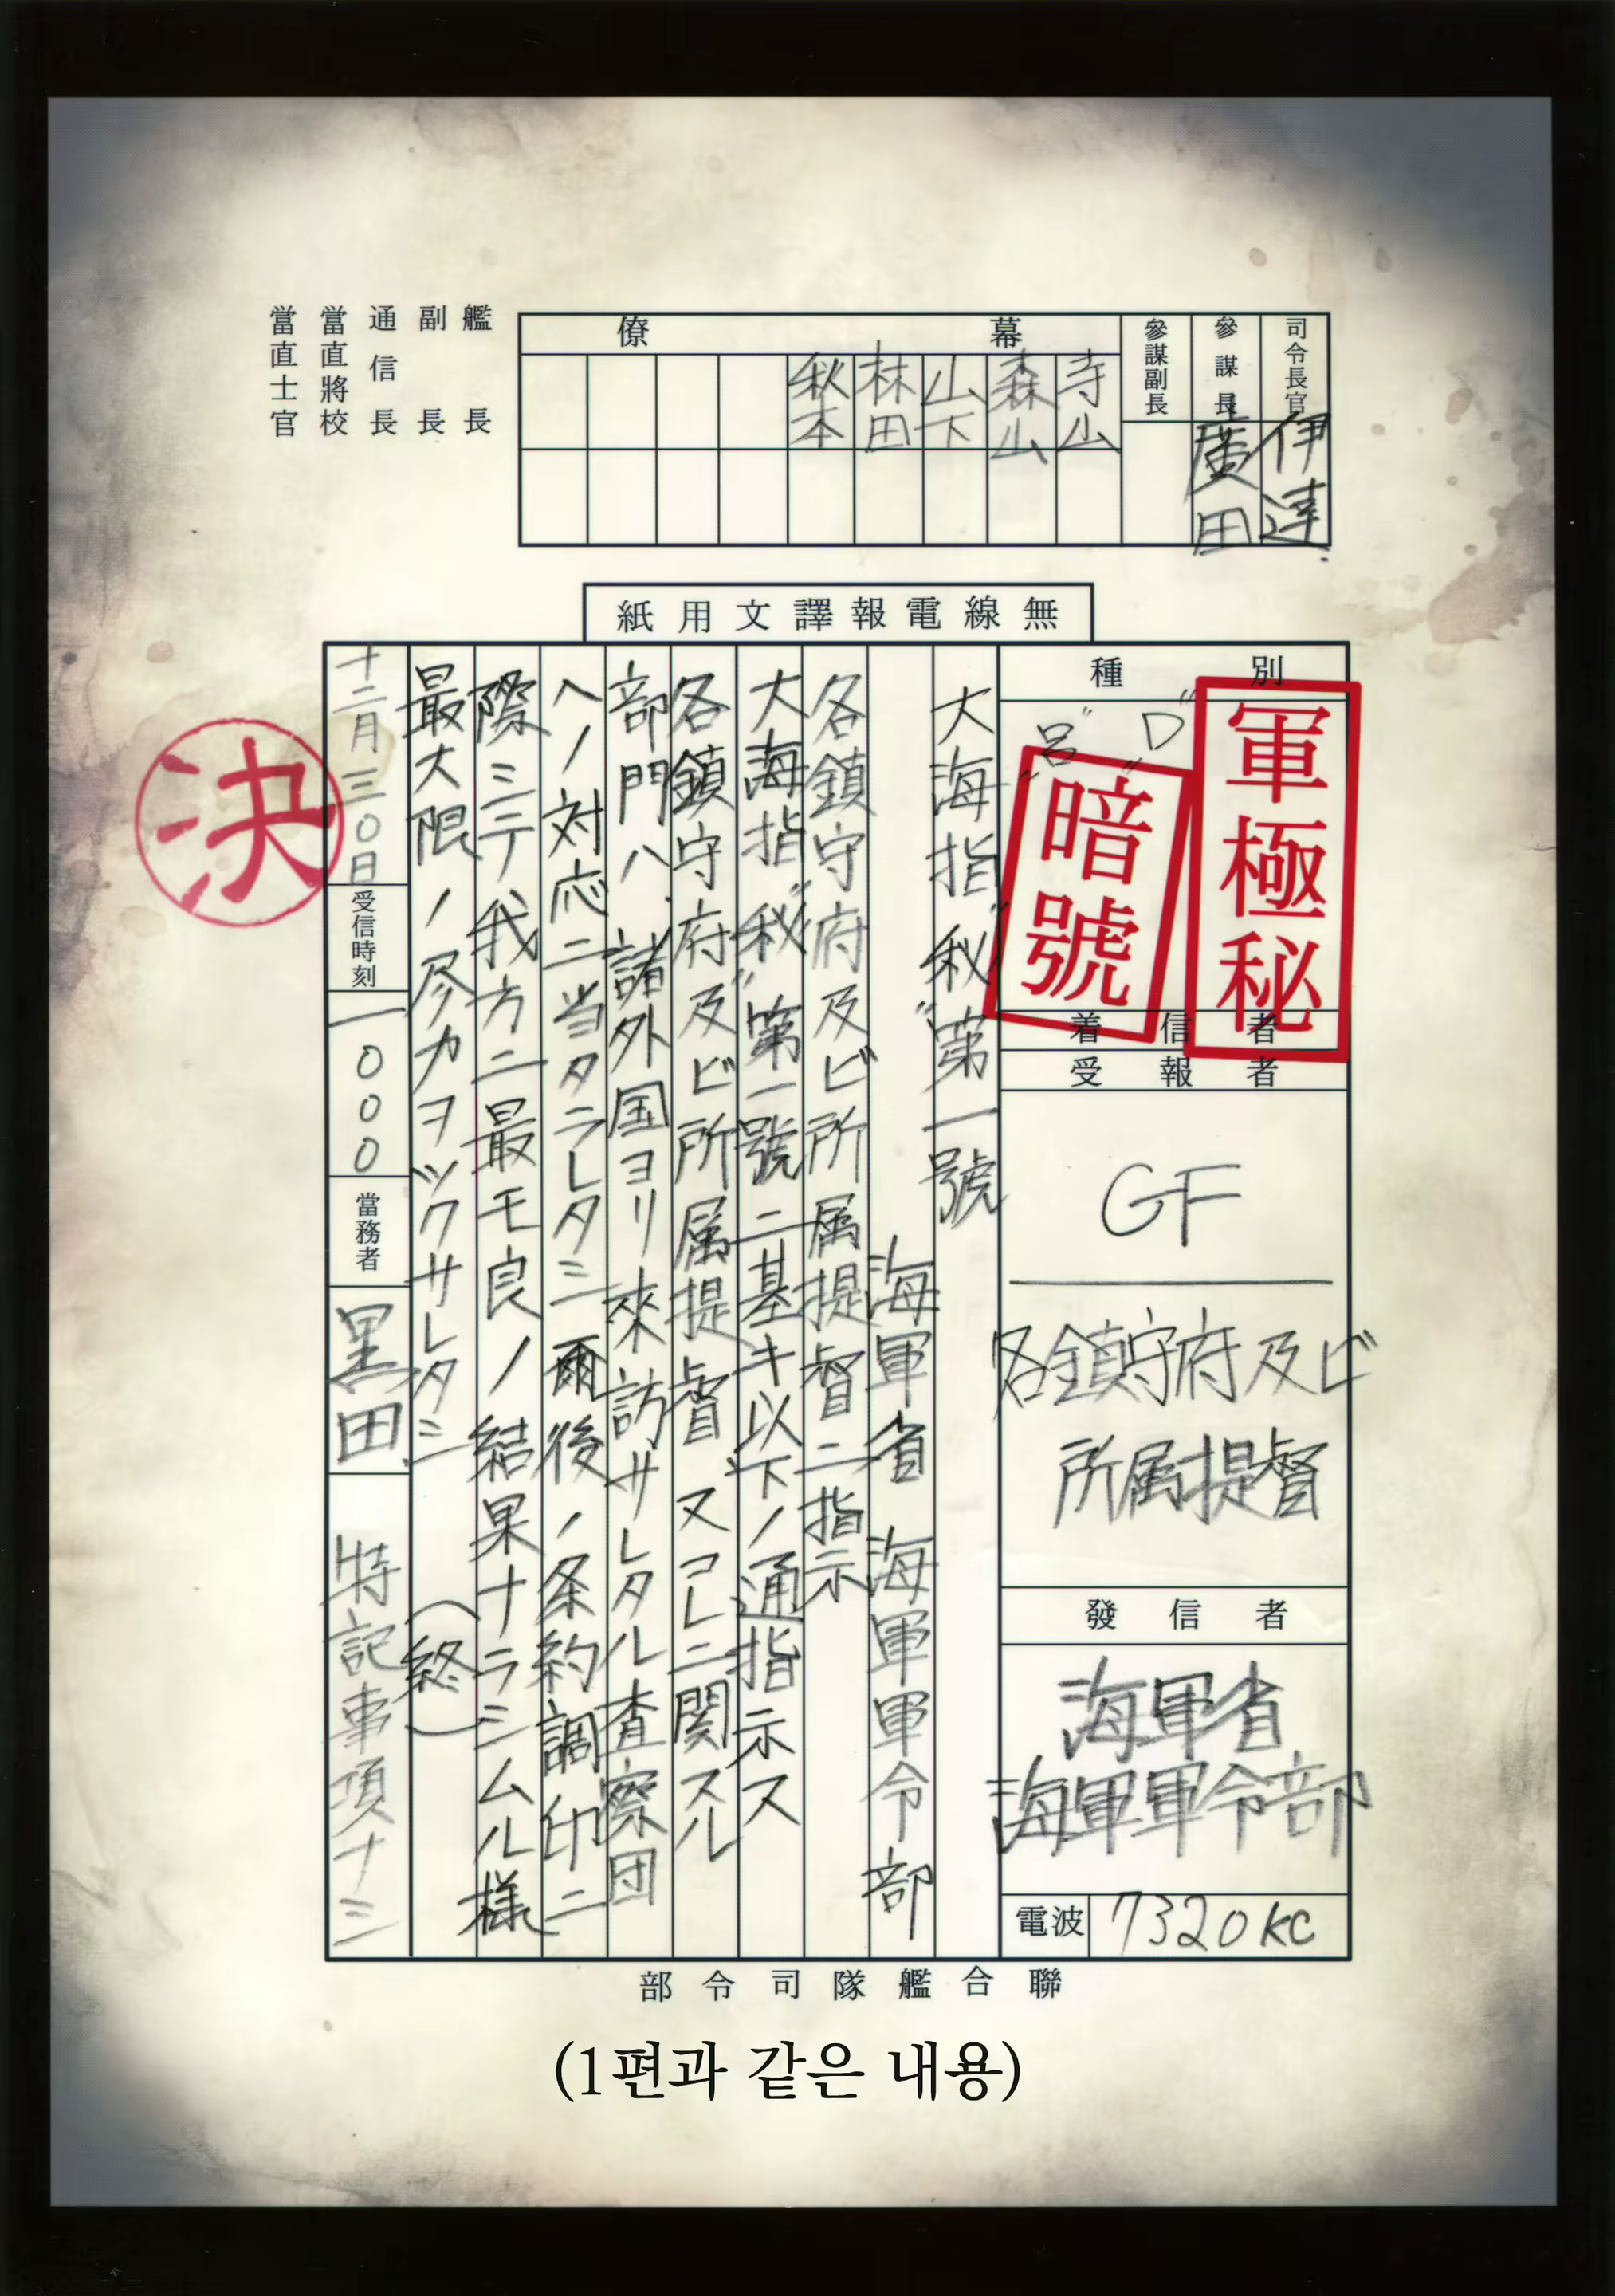 司令長官
伊達
參謀長
廣田
參謀副長
幕僚
寺山
森山
山下
林田
秋本
艦長
副長
通信長
當直將校
當直士官
無線電報譯文用紙
種別
軍極秘
暗號
"D"
"呂"
着信者
受報者
GF
各鎮守府及ビ
所属提督
發信者
海軍省
海軍軍令部
電波
7320KC
大海指"秘"第一號
海軍省 海軍軍令部
各鎮守府及ビ所属提督ニ指示
大海指"秘"第一號ニ基キ以下ノ通指示ス
各鎮守府及ビ所属提督 又コレニ関スル
部門ハ、諸外国ヨリ来訪サレタル査察団
ヘノ対応ニ当タラレタシ 爾後ノ条約調印ニ
際シテ我方ニ最モ良ノ結果ナラシムル様
最大限ノ尽力ヲツクサレタシ
(終)
十二月三〇日
受信時刻
一000
當務者
里田
特記事項ナシ
決
聯合艦隊司令部
(1편과 같은 내용)